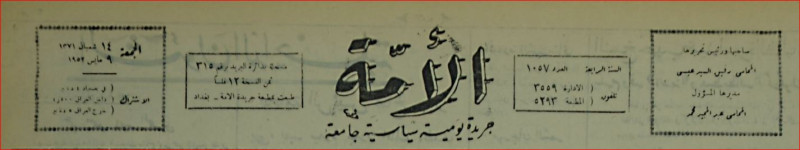 صاحبها ورئيس تحريرها
المحامي
مديرها المسؤول
المحامي عبد المجيد محمد
السنة الرابعة العدد ١٠٥٧
تلفون
الادارة ٣٥٥٩
المطبعة ٥٢٩٣
الأمّة
جريدة يومية سياسية جامعة
مسجلة بدائرة البريد برقم ٣١٥
ثمن النسخة ١٢ فلساً
طبعت بمطبعة جريدة الامة - بغداد
الجمعة
١٤ شعبان ١٣٧١
٩ مايس ١٩٥٢
الاشتراك